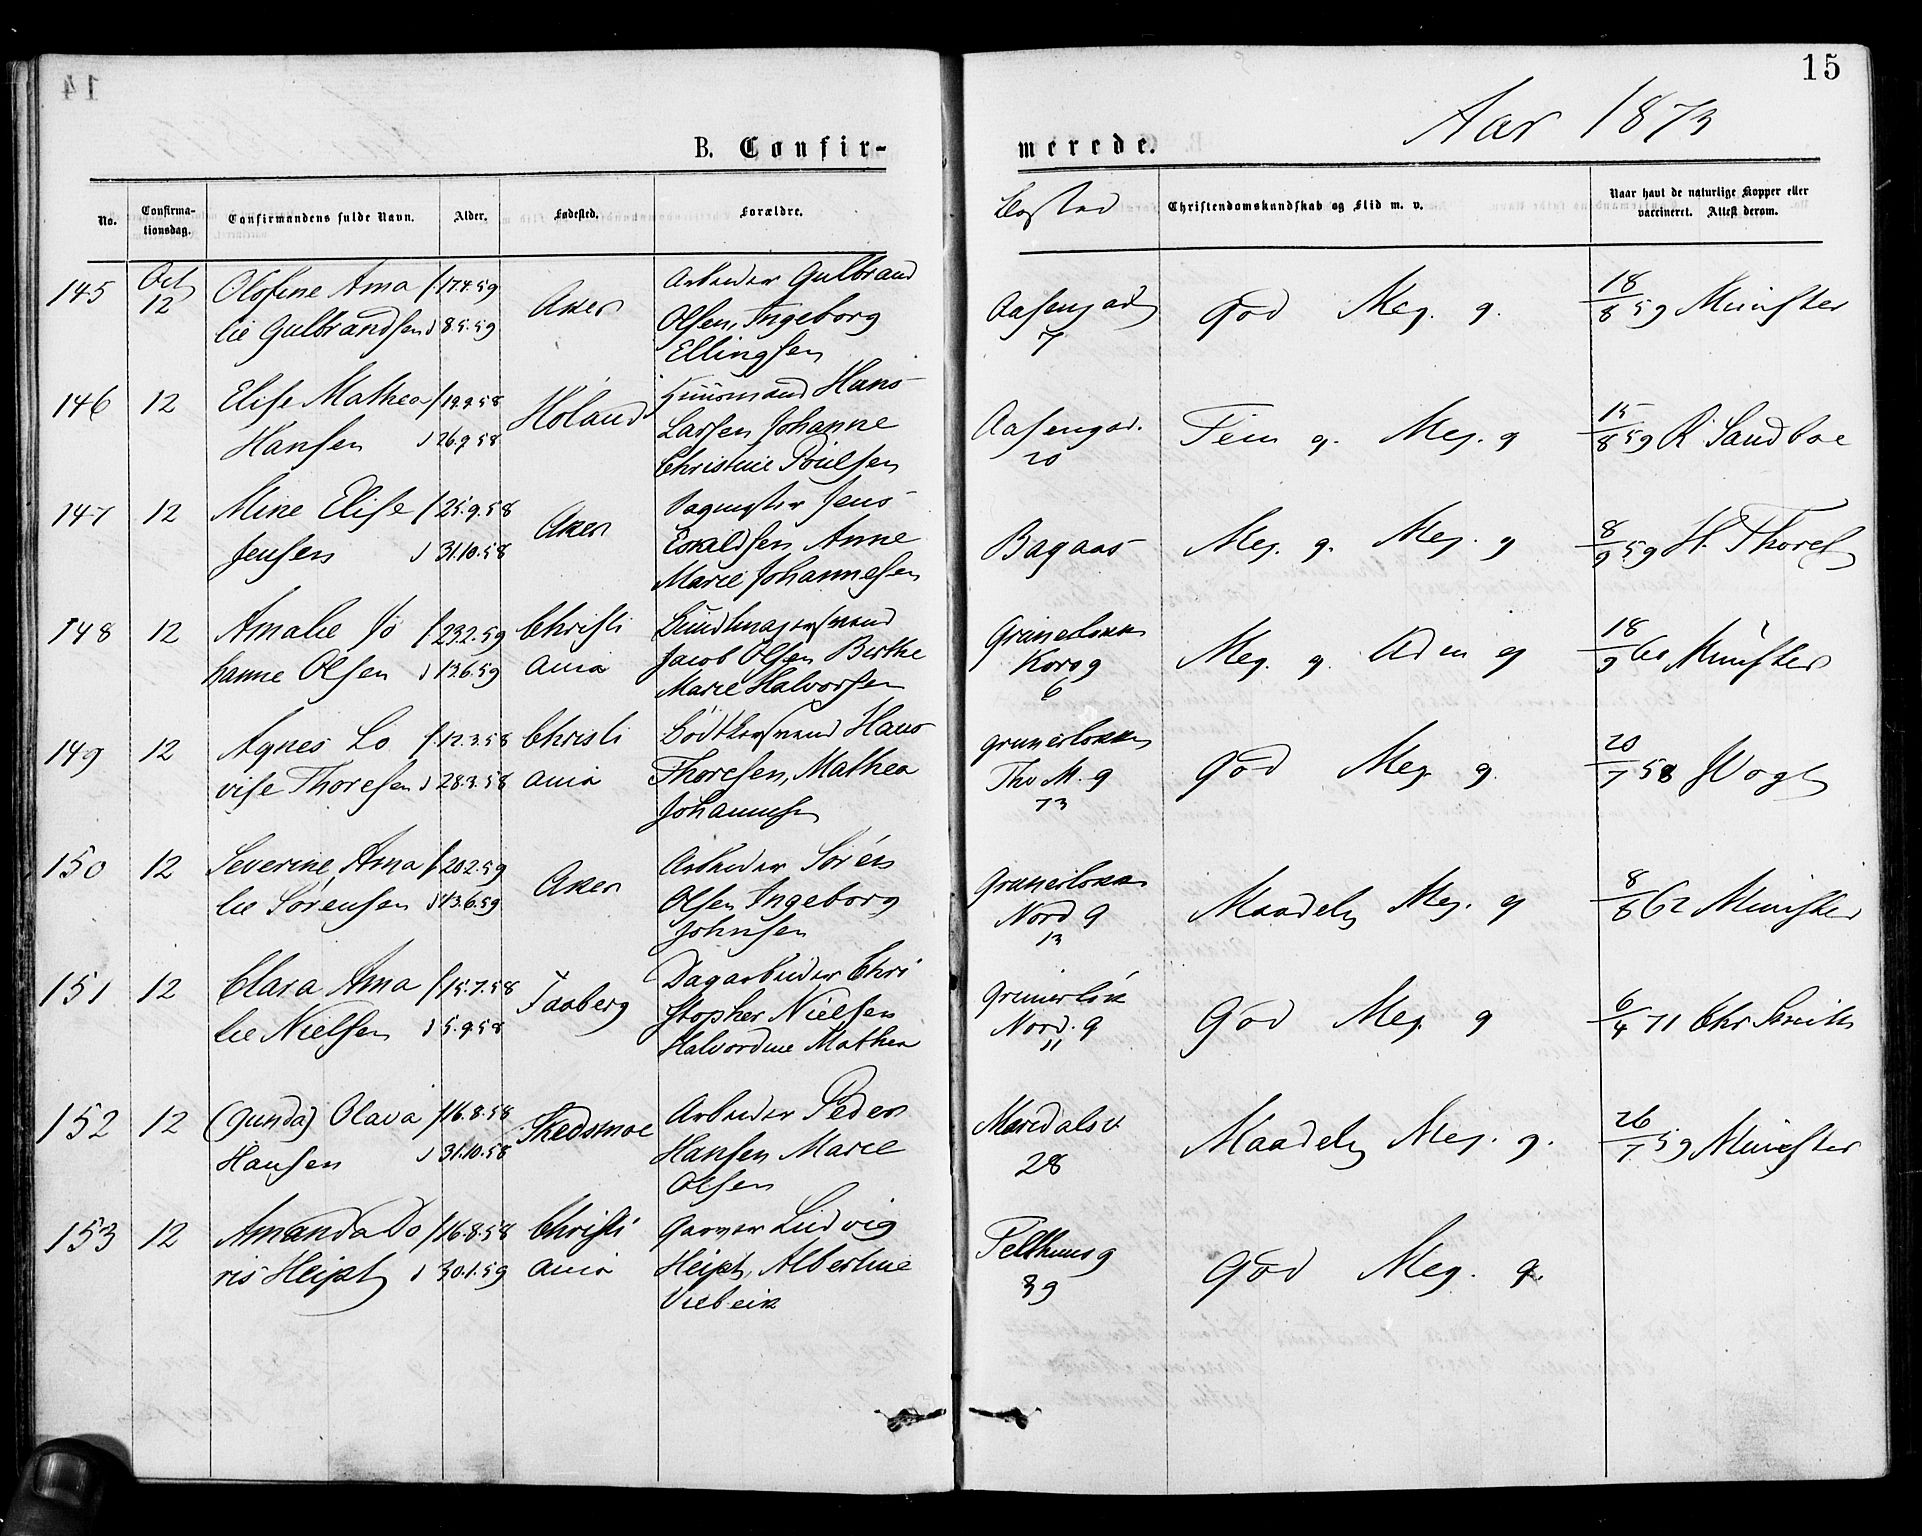 15
Aar 1873
B. Confir-
merede.
No.
Confirma-
tionsdag.
Confirmandens fulde Navn.
Alder.
Fødested.
Forældre.
Bosted
Christendomskundskab og Flid m. v.
Naar havt de naturlige Kopper eller
vaccineret. Attest derom.
145 Oct 12
Olofine Ama f. 17.4.59
lie Gulbrandsen d 8.5.59
Aker
Arbeider Gulbrand
Olsen, Ingeborg
Ellingsen
Aasengad
7
God Meg. g.
18/8 59 Münster
146 12
Elise Mathea f 19.9.58
Hansen d 26.9.58
Høland
Huusmand Hans
Larsen Johanne
Christine Poulsen
Aasengad.
20
Tem g. Meg. g
15/8 59 R Sandboe
147 12
Mine Elise f 25.9.58
Jensen d 31.10.58
Aker
Vagmester Jens
Eskildsen Anne
Marie Johannesen
Bagaas
Meg. g. Meg. g
8/9 59 H. Thoresen
148 12
Amalie Jo f 23.2.59
hanne Olsen d 13.6.59
Christi
ania
Buntmagersvend
Jacob Olsen Birthe
Marie Halvorsen
Grünerløkken
Korsg
6
Meg. g Udm g
18/9 60 Münster
149 12
Agnes Lo f. 12.3.58
vise Thoresen d 28.3.58
Christi
ania
Bødtkersvend Hans
Thoresen, Mathea
Johannesen
Grunerløkken
Thv M. g
73
God Meg. g.
20/7 58 J Vogt
150 12
Severine Ama f. 20.2.59
lie Sørensen d 13.6.59
Aker
Arbeider Søren
Olsen Ingeborg
Johnsen
Grunerløkken
Nord g
13
Maadelig Meg. g
8/8 62 Münster
151 12
Clara Ama f 15.7.58
lie Nielsen d 5.9.58
Faaberg
Dagarbeider Chri
stopher Nielsen
Halvordine Mathea
Grünerløk
Nord. g
11
God Meg. g
6/4 71 Chr Smith
152 12
(Gunda) Olava f 16.8.58
Hansen d 31.10.58
Skedsmoe
Arbeider Peder
Hansen Marie
Olsen
Maridalsv.
28
Maadelig Meg. g.
26/7 59 Münster
153 12
Amanda Do f 16.8.58
ris Heipt d 30.1.59
Christi
ania
Garver Ludvig
Heipt, Albertine
Viebeik
Telthusg
39
God Meg. g.